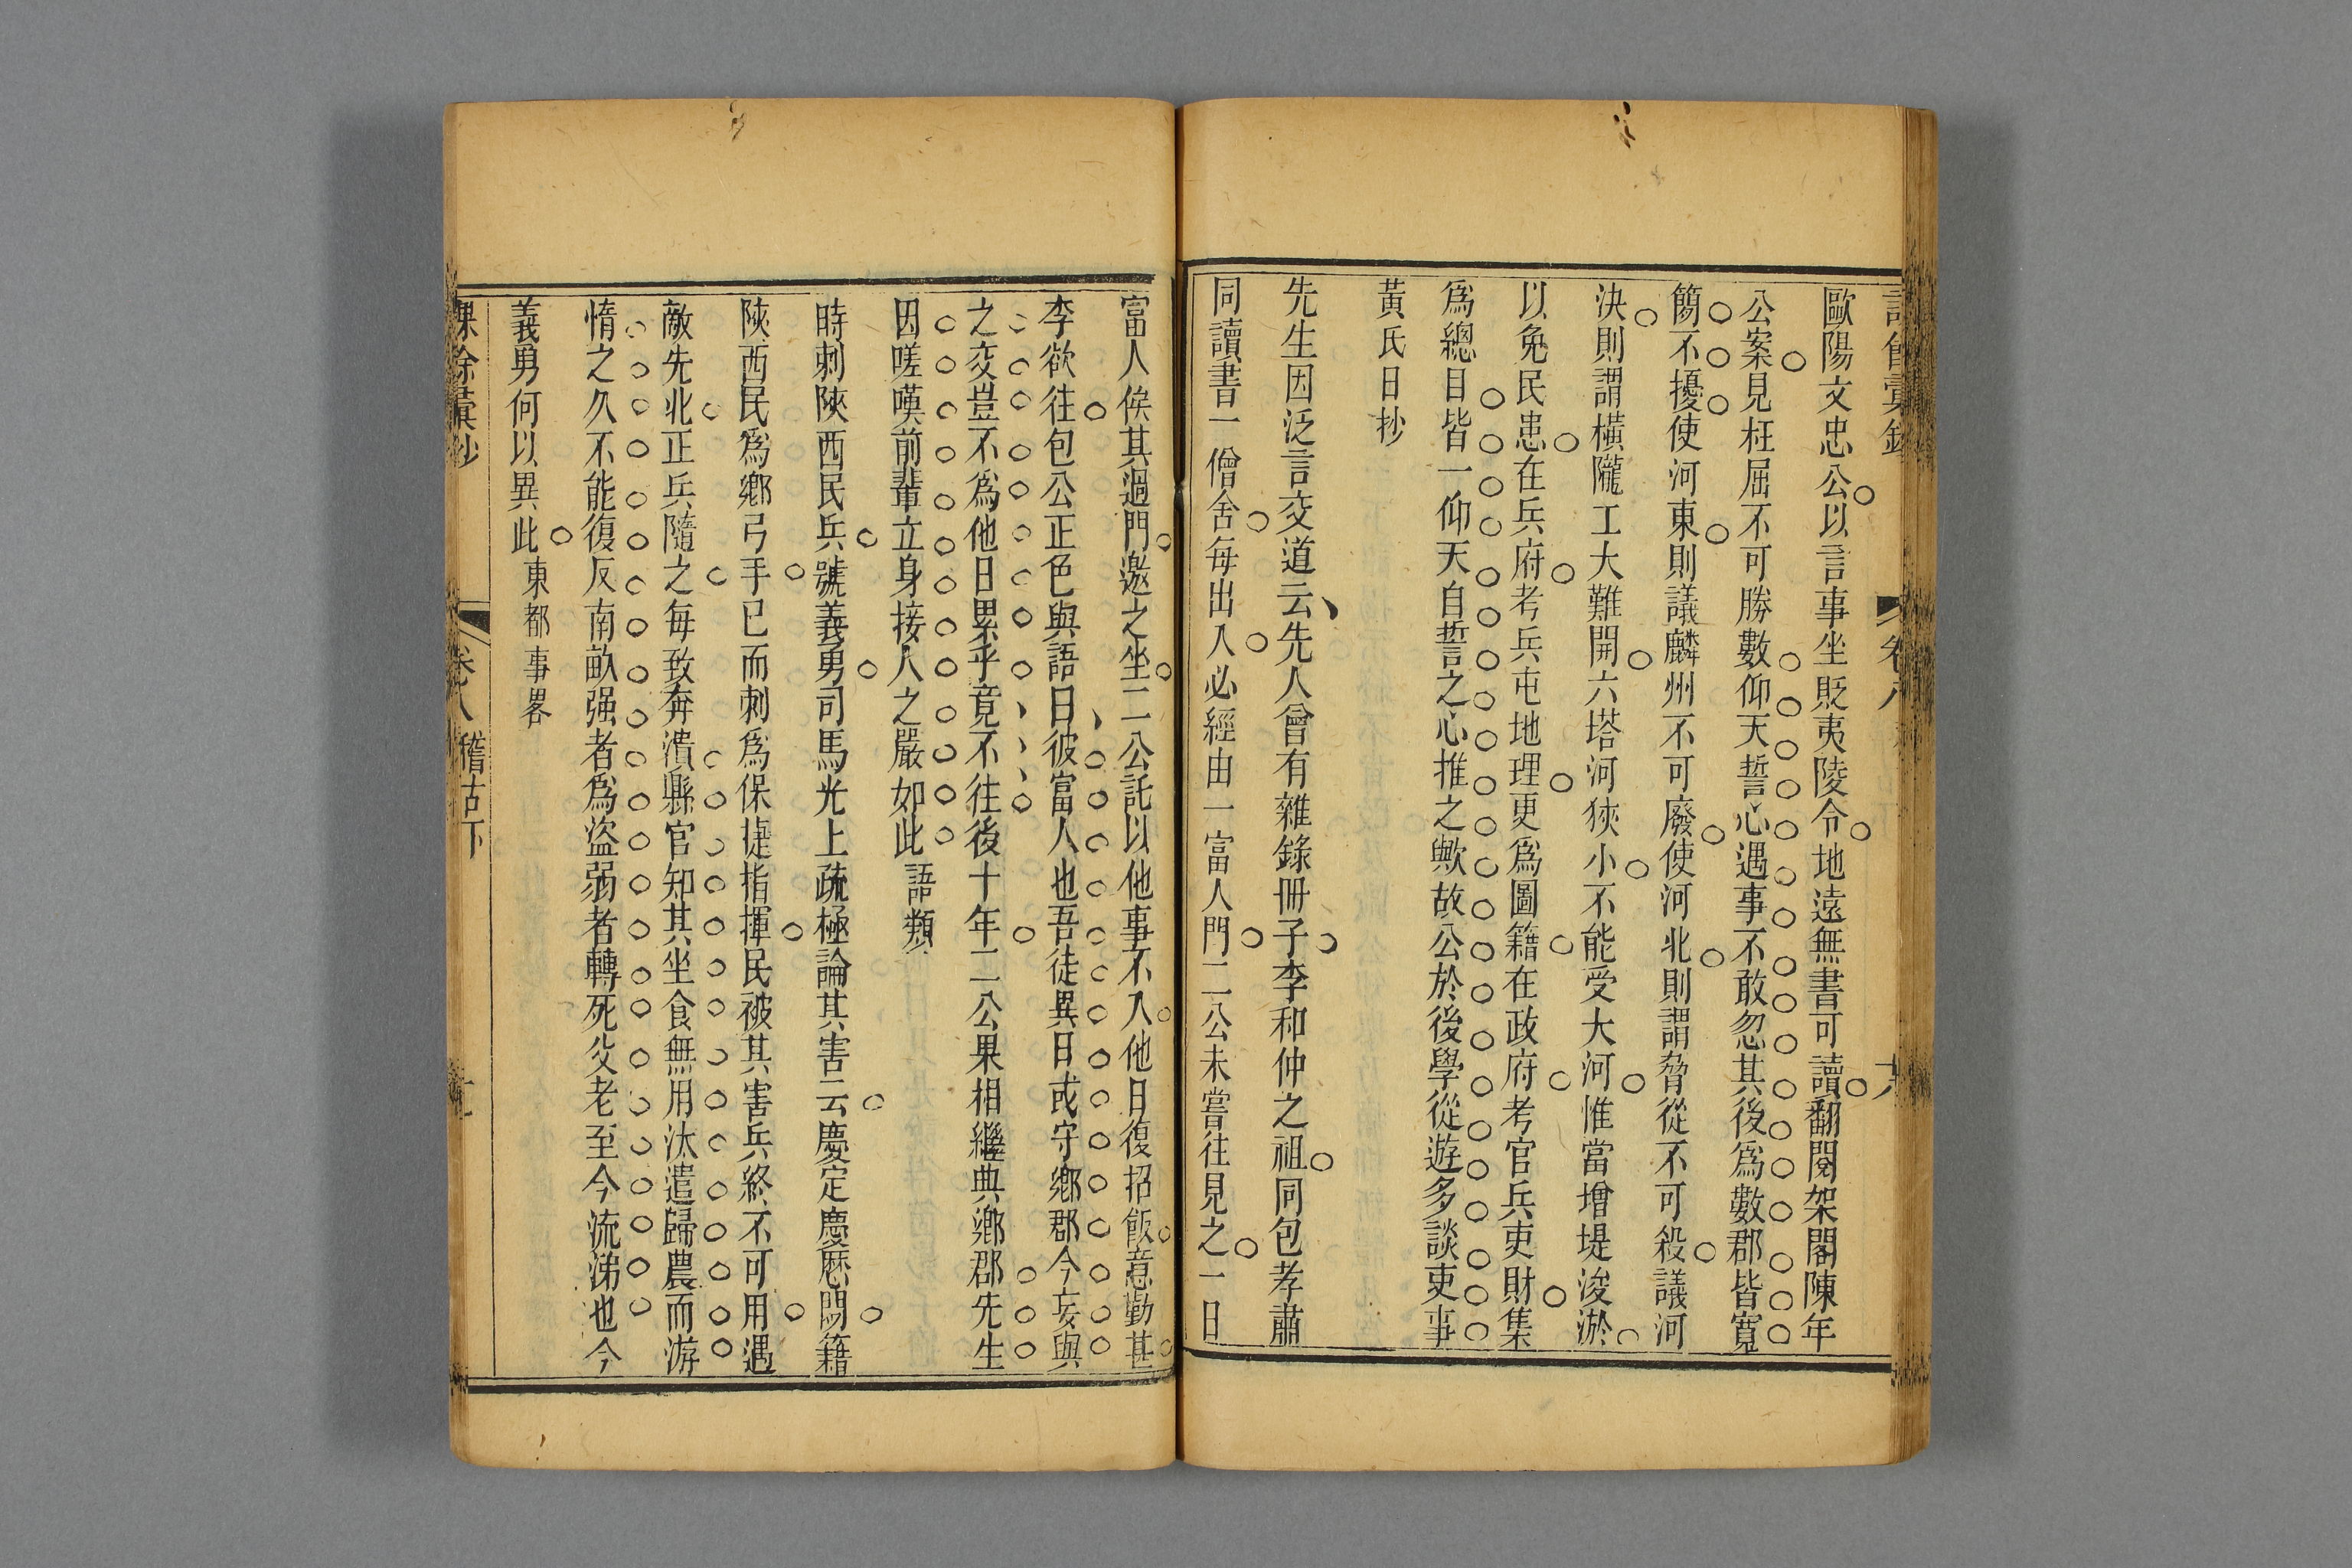 卷八
六
歐陽文忠公以言事坐貶夷陵令地遠無書可讀翻閱架閣陳年
公案見枉屈不可勝數仰天誓心遇事不敢忽其後爲數郡皆寬
簡不擾使河東則議麟州不可廢使河北則謂脅從不可殺議河
決則謂橫隴工大難開六塔河狹小不能受大河惟當增堤浚淤
以免民患在兵府考兵屯地理更爲圖籍在政府考官兵吏財集
爲總目皆一仰天自誓之心推之歟故公於後學從遊多談吏事
黃氏日抄
先生因泛言交道云先人曾有雜錄冊子李和仲之祖同包孝肅
同讀書一僧舍每出入必經由一富人門二公未嘗往見之一日
富人俟其過門邀之坐二公託以他事不入他日復招飯意勤甚
李欲往包公正色與語曰彼富人也吾徒異日或守鄉郡今妄與
之交豈不爲他日累乎竟不往後十年二公果相繼典鄉郡先生
因嗟嘆前輩立身接人之嚴如此 語類
時刺陝西民兵號義勇司馬光上疏極論其害云慶定慶曆間籍
陝西民爲鄉弓手已而刺爲保捷指揮民被其害兵終不可用遇
敵先北正兵隨之每致奔潰縣官知其坐食無用汰遣歸農而游
惰之久不能復反南畝强者爲盜弱者轉死父老至今流涕也今
義勇何以異此 東都事畧
課餘彙抄
卷八 稽古下